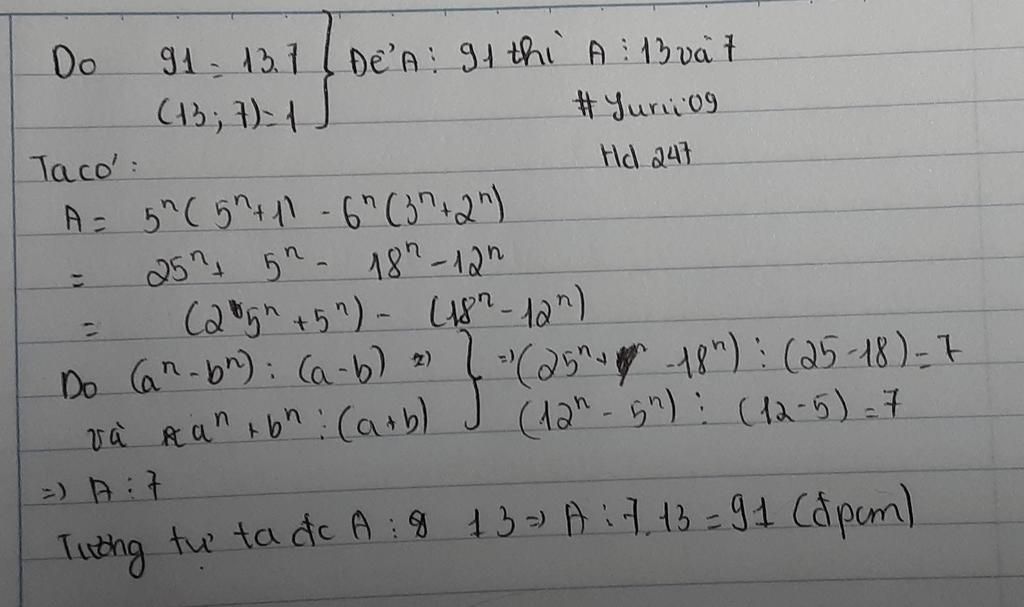 Do 91 = 13.7 } Để A ⋮ 91 thì A ⋮ 13 và 7
(13; 7) = 1
#Yurii09
Hd 247
Ta có:
A = 5ⁿ( 5ⁿ+1) - 6ⁿ(3ⁿ+2ⁿ)
= 25ⁿ + 5ⁿ - 18ⁿ - 12ⁿ
= (25ⁿ + 5ⁿ) - (18ⁿ - 12ⁿ)
Do (aⁿ - bⁿ) ⋮ (a - b) } => (25ⁿ - 18ⁿ) ⋮ (25 - 18) = 7
và aⁿ + bⁿ ⋮ (a + b) (12ⁿ - 5ⁿ) ⋮ (12 - 5) = 7
=> A ⋮ 7
Tương tự ta đc A ⋮ 13 => A ⋮ 7.13 = 91 (đpcm)